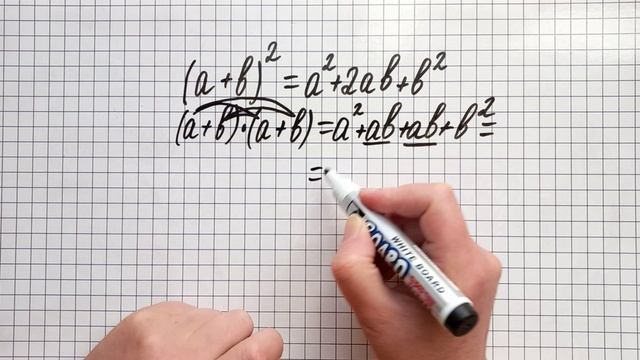 (a+b)² = a²+2ab+b²
(a+b)·(a+b) = a²+ab+ab+b² =
=
WHITE BOARD
BOARD